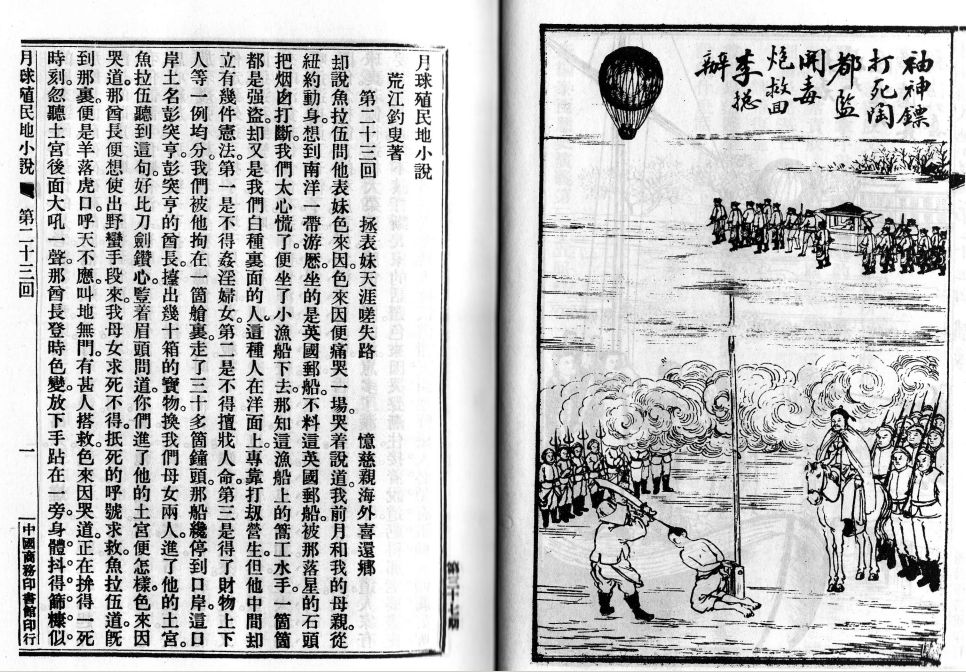 袖神鏢
打死陶
都監
開毒
炮救回
李搃
辦
月球殖民地小說
荒江釣叟著
第二十三回　拯表妹天涯嗟失路　憶慈親海外喜還鄉
却說魚拉伍問他表妹色來因色來因便痛哭一場哭着說道我前月和我的母親從
紐約動身想到南洋一帶游歷坐的是英國郵船不料這英國郵船被那落星的石頭
把烟囪打斷我們太心慌了便坐了小漁船下去那知這漁船上的篙工水手一箇箇
都是强盜却又是我們白種裏面的人這種人在洋面上專靠打刼營生但他中間却
立有幾件憲法第一是不得姦淫婦女第二是不得擅戕人命第三是得了財物上下
人等一例均分我們被他拘在一箇艙裏走了三十多箇鐘頭那船纔停到口岸這口
岸土名彭突亨彭突亨的酋長擡出幾十箱的寶物換我們母女兩人進了他的土宮
魚拉伍聽到這句好比刀劍鑽心竪着眉頭問道你們進了他的土宮便怎樣色來因
哭道那酋長便想使出野蠻手段來我母女求死不得抵死的呼號求救魚拉伍道旣
到那裏便是羊落虎口呼天不應叫地無門有甚人搭救色來因哭道正在拚得一死
時刻忽聽土宮後面大吼一聲那酋長登時色變放下手跕在一旁身體抖得篩糠似
月球殖民地小說　第二十三回　一　中國商務印書館印行
第三十七期